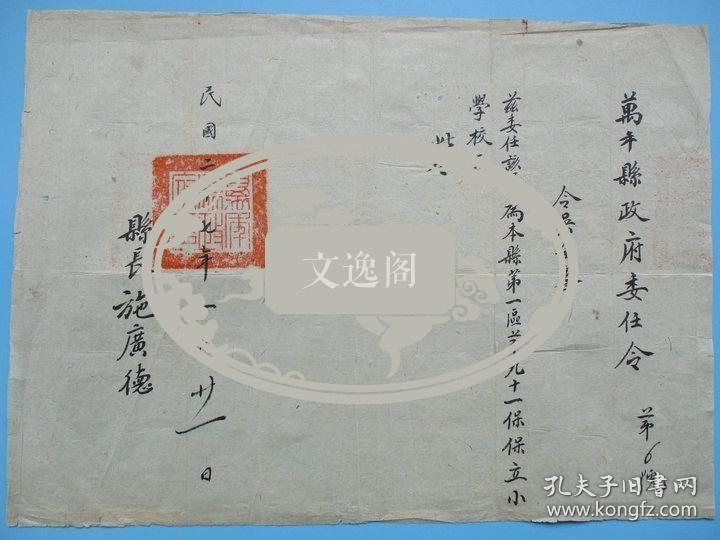 萬年縣政府委任令
第6號
令吳
茲委任該
為本縣第一區第九十一保保立小
學校
此令
民國二
七年一月廿一日
縣長施廣德
文逸阁
孔夫子旧书网
www.kongfz.com